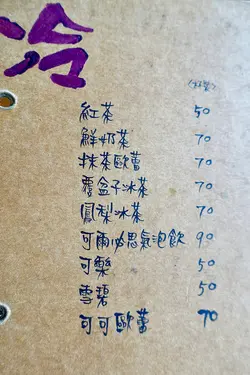 冷
紅茶 50
鮮奶茶 70
抹茶歐蕾 70
覆盆子冰茶 70
鳳梨冰茶 70
可爾必思氣泡飲 90
可樂 50
雪碧 50
可可歐蕾 70